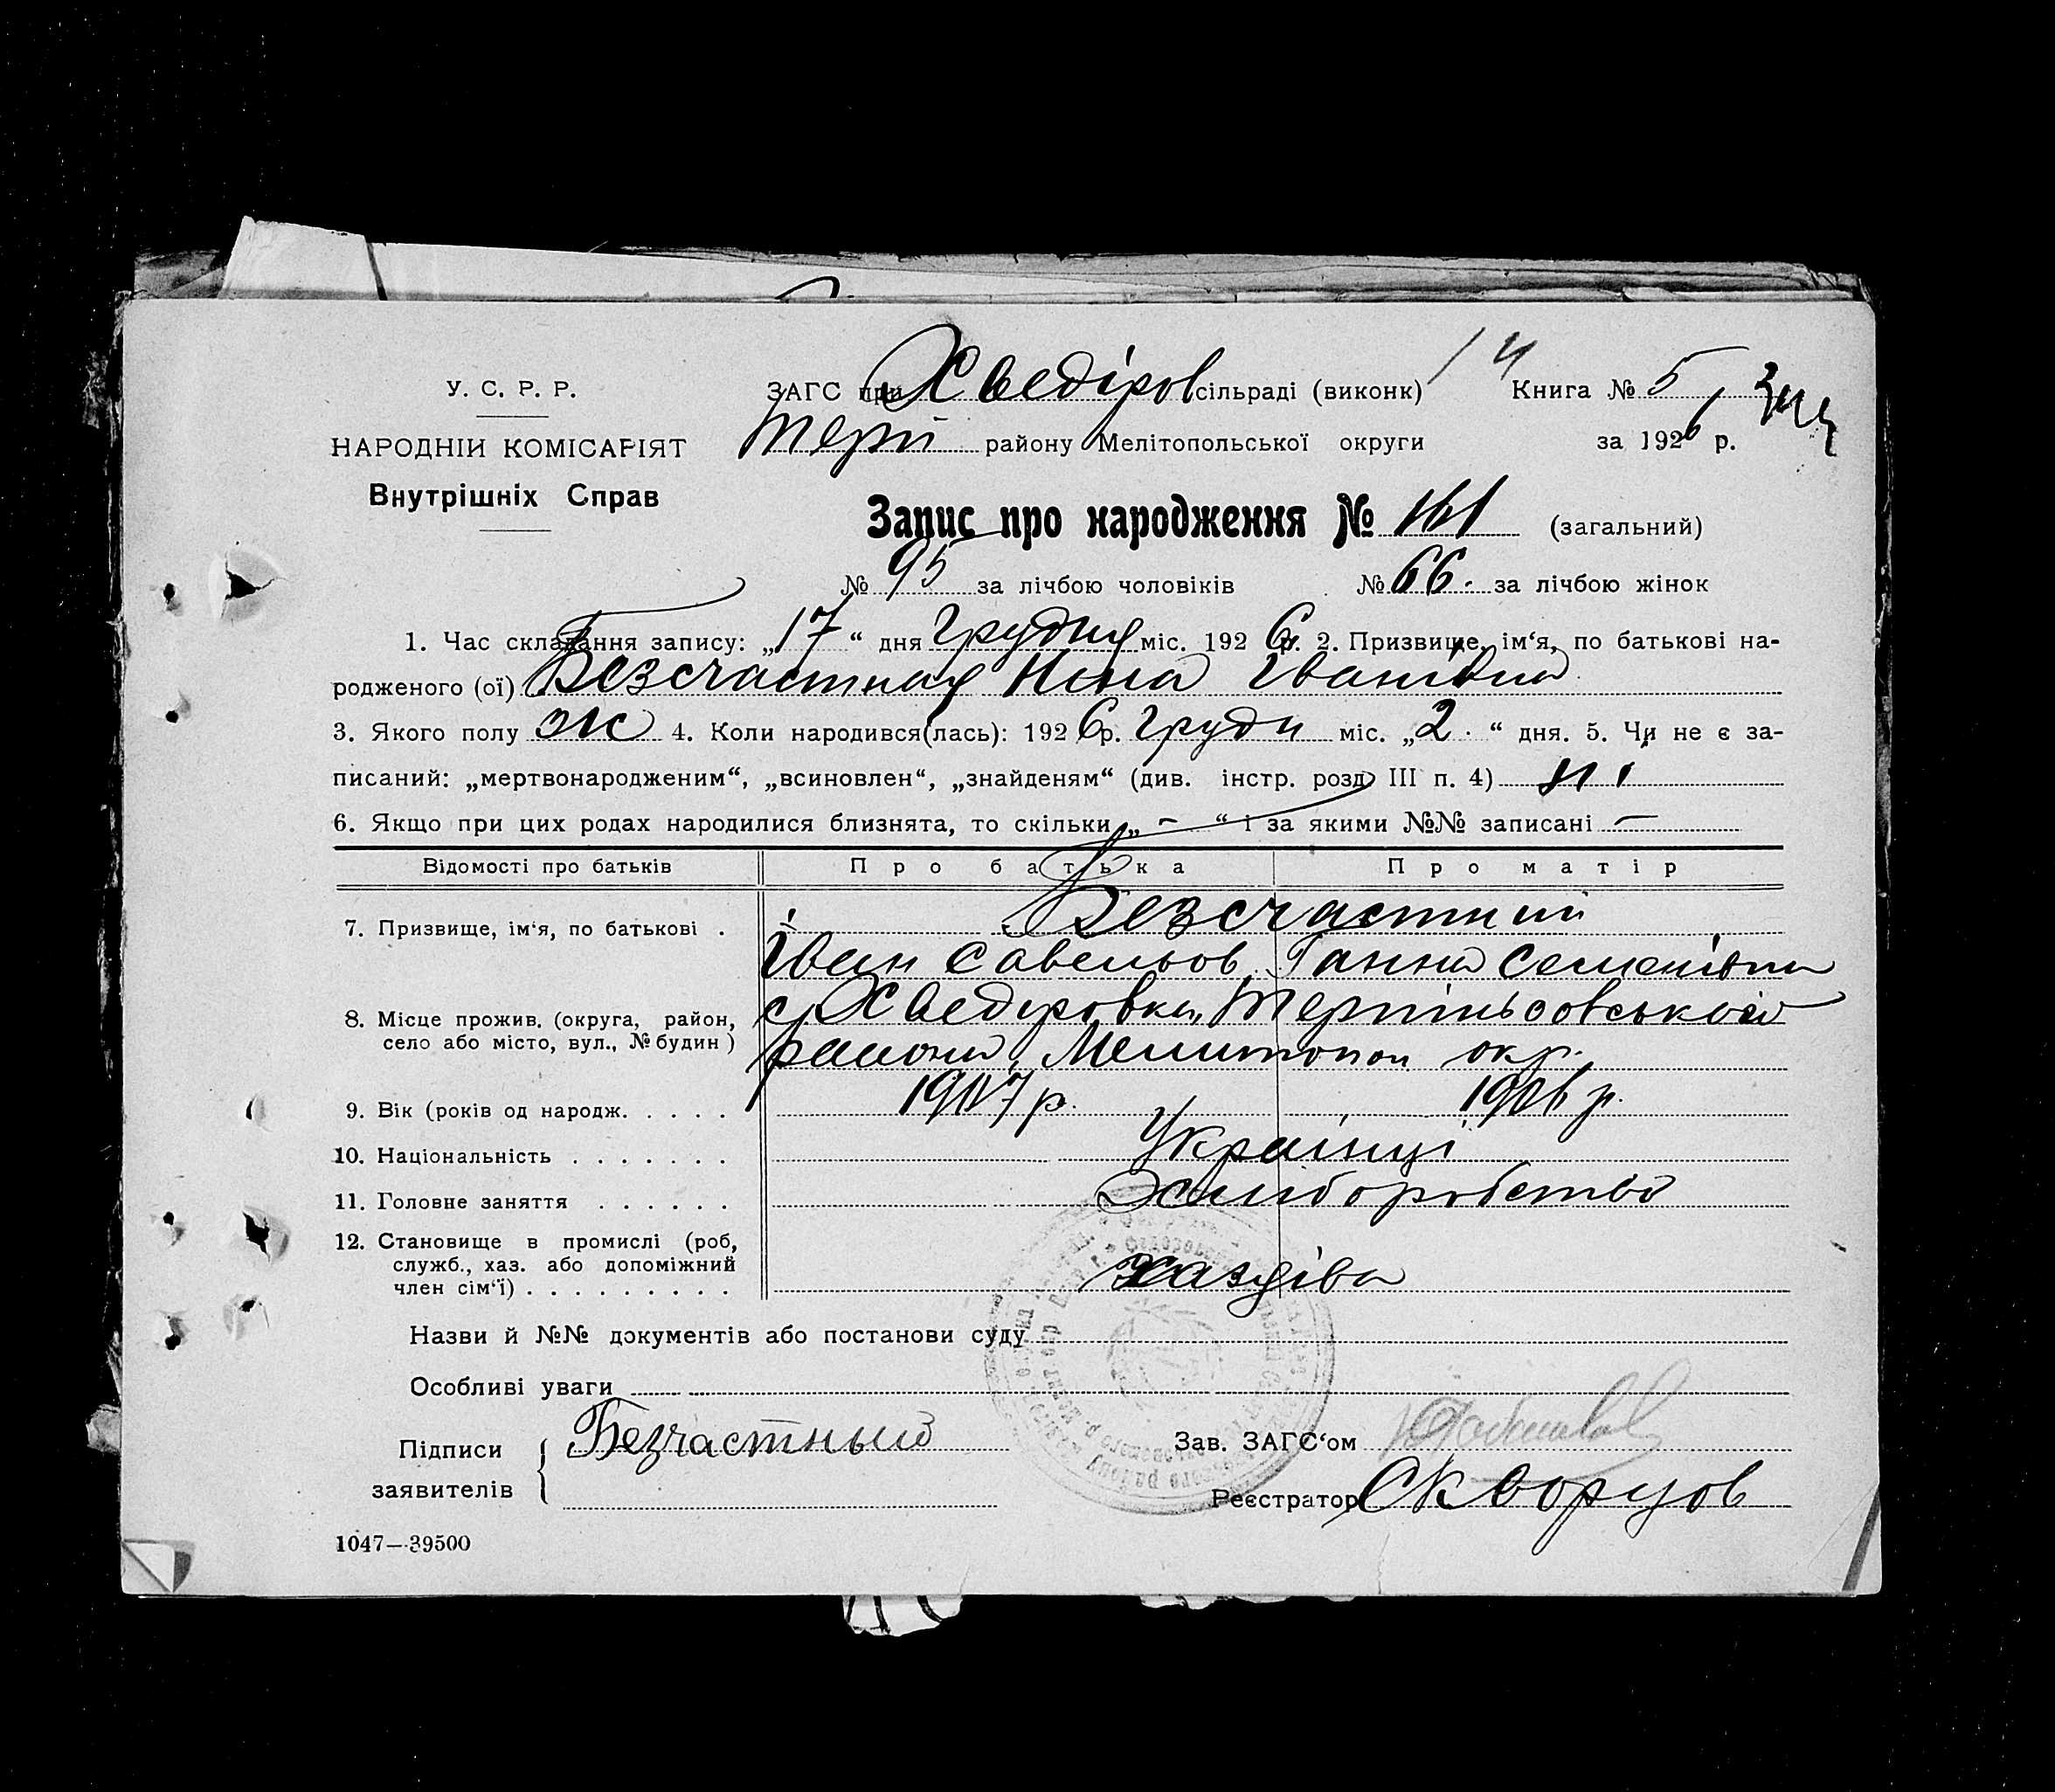 14
У. С. Р. Р. ЗАГС при Хведіров сільраді (виконк) Книга № 5
НАРОДНІЙ КОМІСАРІЯТ Терп району Мелітопольської округи за 1926 р.
Внутрішніх Справ
Запис про народження № 161 (загальний)
№ 95 за лічбою чоловіків № 66. за лічбою жінок
1. Час складання запису: „17“ дня Грудня міс. 1926 р. 2. Призвище, ім‘я, по батькові на-
родженого (ої) Безсчастная Нина Іванівна
3. Якого полу ж 4. Коли народився(лась): 1926 р. Грудн міс. „2“ дня. 5. Чи не є за-
писаний: „мертвонародженим“, „всиновлен“, „знайденям“ (див. інстр. розд. III п. 4) ні
6. Якщо при цих родах народилися близнята, то скільки „ – “ і за якими №№ записані –
Відомості про батьків Про батька Про матір
7. Призвище, ім‘я, по батькові . Безсчастний
Іван Савельов Ганна Семенівна
8. Місце прожив. (округа, район, с Хведировка, Терпіньовського
село або місто, вул., № будин) району, Мелитопол окр.
9. Вік (років од народж. . . . . 1907 р. 1906 р.
10. Національність . . . . . . . Українці
11. Головне заняття . . . . . . Хлиборобство
12. Становище в промислі (роб,
служб., хаз. або допоміжний
член сім‘ї) . . . . . . . . . хазяіва
Назви й №№ документів або постанови суду
Особливі уваги
Підписи Безчастный Зав. ЗАГС‘ом
заявителів Реєстратор Скворцов
1047—39500